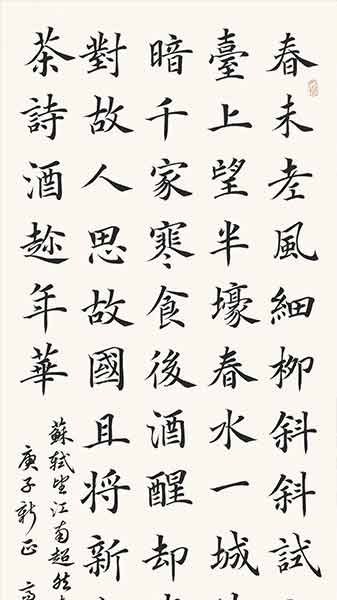 春未老風細柳斜斜試
臺上望半壕春水一城
暗千家寒食後酒醒却
對故人思故國且將新
茶詩酒趂年華
蘇軾望江南超然
庚子新正